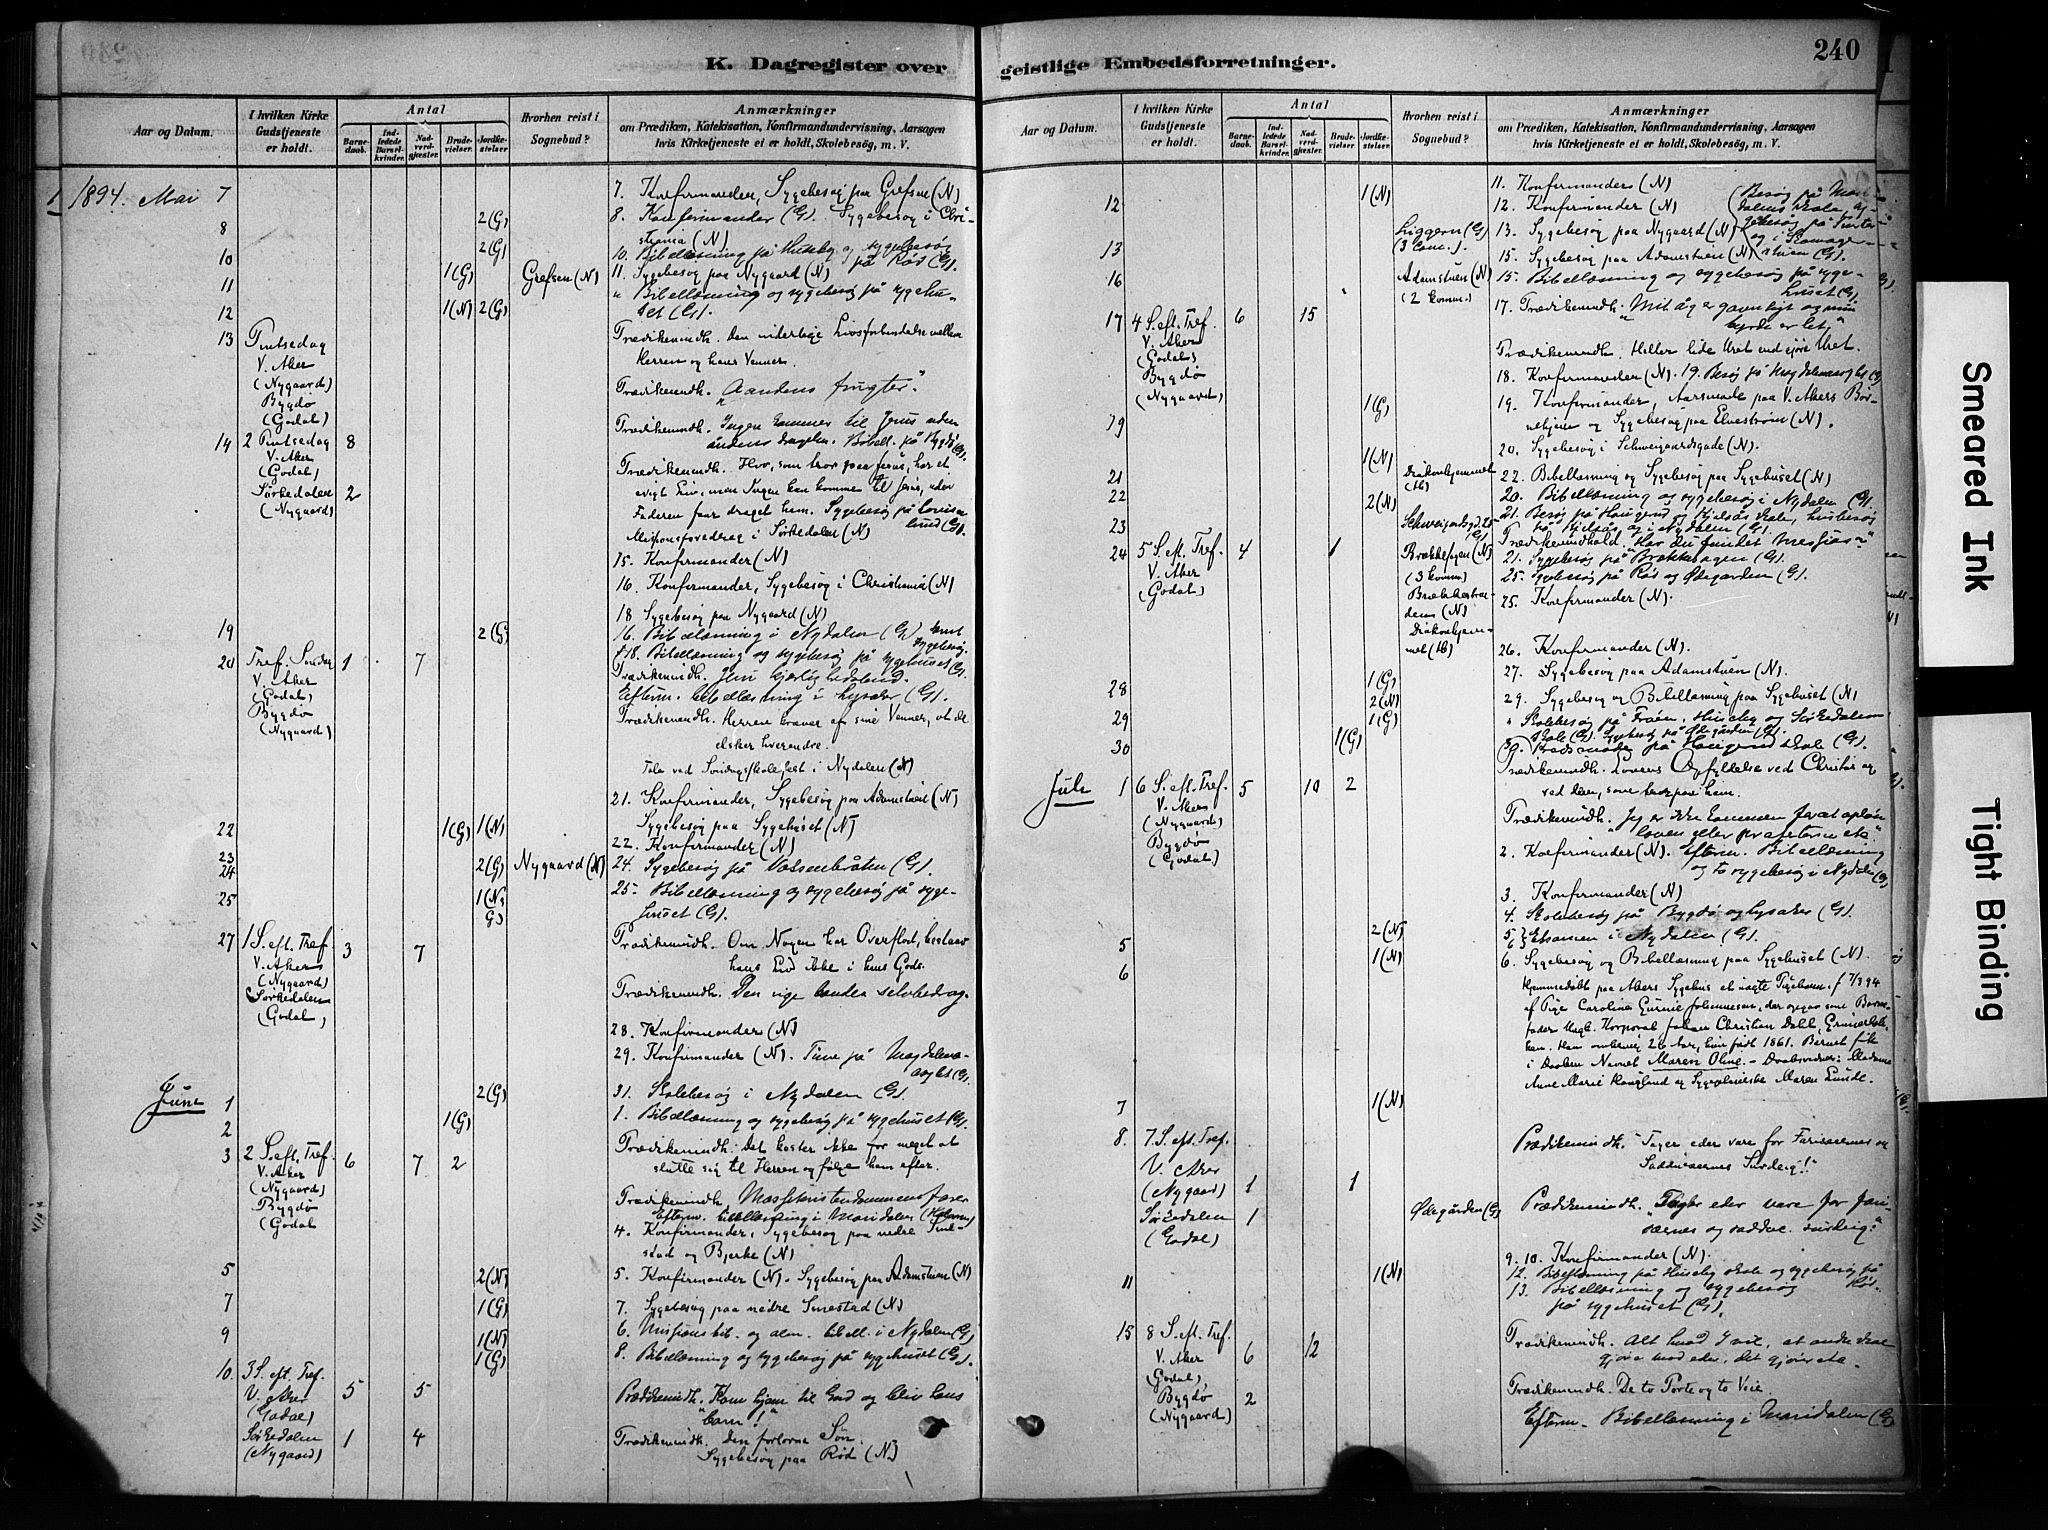 240
K. Dagregister over
geistlige Embedsforretninger.
Aar og Datum.
I hvilken Kirke Gudstjeneste er holdt.
Antal
Barnedaab.
Indledede Barselkvinder.
Nadverdgjester.
Brudevielser.
Jordfæstelser
Hvorhen reist i Sognebud?
Anmærkninger
om Prædiken, Katekisation, Konfirmandundervisning, Aarsagen
hvis Kirketjeneste ei er holdt, Skolebesög, m. V.
1894. Mai 7
7. Konfirmander, Sygebesøg paa Grefsen (N)
8 2(G)
8. Konfirmander (G). Sygebesøg i Christiania (N)
10 2(G)
10. Bibellæsning på Huseby og sygebesøg på Røs (G).
11 1(G) Grefsen (N)
11. Sygebesøg paa Nygaard (N)
" Bibellæsning og sygebesøg på sygehuset (G).
12 1(N) 2(G)
13 Pintsedag
V. Aker
(Nygaard)
Bygdø
(Godal)
Prædikenindh. Den inderlige Livsforbindelse mellem
Herren og hans Venner.
Prædikenindh. "Aandens frugter."
14 2 Pintsedag 8
V. Aker
(Godal)
Sørkedalen 2
(Nygaard)
Prædikenindh. Ingen kommer til Jesus uden
åndens dragelse. Bibell. på Bygdø (G).
Prædikenindh. Hver, som tror paa Jesus, har et
evigt Liv, men Ingen kan komme til Jesus, uden
Faderen faar draget ham. Sygebesøg på Lovisenlund (G).
Missionsforedrag i Sørkedalen (N)
15. Konfirmander (N)
16. Konfirmander, Sygebesøg i Christiania (N)
18 Sygebesøg paa Nygaard (N)
19 2(G)
16. Bibellæsning i Nydalen (G) samt sygebesøg.
18. Bibellæsning og sygebesøg på sygehuset (G).
20 Tref. Søndag 1 7
V. Aker
(Godal)
Bygdø
(Nygaard)
Prædikenindh. Jesu kjærlighedsbud.
Efterm. bibellæsning i Lysaker (G).
Prædikenindh. Herren kræver af sine Venner, at de
elsker hverandre.
Tale ved Søndagsskolefest i Nydalen (N)
21. Konfirmander, Sygebesøg paa Adamstuen (N)
22 1(G) 1(N)
Sygebesøg paa Sygehuset (N)
22. Konfirmander (N)
23
24 2(G) Nygaard (N)
24. Sygebesøg på Vossenbråten (G).
25 1(N)
G)
25. Bibellæsning og sygebesøg på sygehuset (G).
27 1 S. eft. Tref. 3 7
V. Aker
(Nygaard)
Sørkedalen
(Godal)
Prædikenindh. Om Nogen har Overflod, bestaar
hans Liv ikke i hans Gods.
Prædikenindh. Den rige bondes selvbedrag.
28. Konfirmander (N)
29. Konfirmander (N). Time på Magdalenaasylet (G).
31. Skolebesøg i Nydalen (G).
Juni 1 2(G)
1. Bibellæsning og sygebesøg på sygehuset (G).
2 1(G)
3 2 S. eft. Tref. 6 7 2
V. Aker
(Nygaard)
Bygdø
(Godal
Prædikenindh. Det koster ikke for meget at
slutte sig til Herren og følge ham efter.
Prædikenindh. Massekristendommens farer
Efterm. bibellæsning i Maridalen
4. Konfirmander, Sygebesøg paa nedre Smestad og Bjerke (N)
5 2(N)
5. Konfirmander (N). Sygebesøg paa Adamstuen (N)
7 1(G)
7. Sygebesøg paa nedre Smestad (N)
6. Missionsbib. og alm. bibell. i Nydalen (G)
9 1(N)
1(G)
8. Bibellæsning og sygebesøg på sygehuset (G).
10 3 S. eft. Tref.
V. Aker 5 5
(Godal)
Sørkedalen 1 4
(Nygaard)
Prædikenindh. "Kom hjem til Gud og bliv hans
barn!"
Prædikenindh. Den forlorne Søn.
Sygebesøg paa Rød (N)
Aar og Datum.
I hvilken Kirke Gudstjeneste er holdt.
Antal
Barnedaab.
Indledede Barselkvinder.
Nadverdgjester.
Brudevielser.
Jordfæstelser
Hvorhen reist i Sognebud?
Anmærkninger
om Prædiken, Katekisation, Konfirmandundervisning, Aarsagen
hvis Kirketjeneste ei er holdt, Skolebesög, m. V.
11. Konfirmanders (N)
12 1(N)
12. Konfirmander (N)
13 (G)
(3 Com.).
13. Sygebesøg paa Nygaard (N)
15. Sygebesøg paa Adamstuen (N)
16 Adamstuen (N)
(2 komm.)
15. Bibellæsning og sygebesøg på sygehuset (G).
17 4 S. eft. Tref. 6 15
V. Aker
(Godal)
Bygdø
(Nygaard)
17. Prædikenindh. "Mit åg er gavnligt og min
byrde er let"
Prædikenindh. Heller lide Uret end gjøre Uret.
18. Konfirmander (N). 19. Besøg på Magdalenaasylet (G)
19 1(G)
19. Konfirmander, Aarsmøde paa V. Akers Børnehjem og Sygebesøg paa Elvestrøm (N).
20. Sygebesøg i Schweigaardsgade (N).
21 1(N) Diakonhjemmet
22. Bibellæsning og Sygebesøg paa Sygehuset (N)
22 2(N)
20. Bibellæsning og sygebesøg i Nydalen (G).
23 Schweigardsgd. 25
(G)
21. Besøg på Haugerud og Kjelsås skole, husbesøg
på Kjelsås og i Nydalen (G).
24 5 S. eft. Tref. 4 1
V. Aker
(Godal)
Brækkehagen (N)
(3 komm)
Prædikenindhold. "Har du fundet Messias?"
21. Sygebesøg på Brækkehagen (G).
25. Sygebesøg på Røs og Ødegården (G).
25. Konfirmander (N).
26. Konfirmander (N).
27. Sygebesøg paa Adamstuen (N).
28 1(G)
2(N)
29. Sygebesøg og Bibellæsning paa Sygehuset (N)
29 1(G)
" Skolebesøg på Frøen, Huseby og Sørkedalens
skole (G). Sygebesøg på Ødegården (G).
30 1(G)
Juli 1 6 S. eft. Tref. 5 10 2
V. Aker
(Nygaard)
Bygdø
(Godal)
Prædikenindh. Lovens Opfyldelse ved Christus og
ved dem, som tror paa ham.
Prædikenindh. "Jeg er ikke kommen for at opløse
loven eller profeterne etc"
2. Konfirmander (N). Efterm. Bibellæsning
og to sygebesøg i Nydalen (G)
3. Konfirmander (N)
4. Skolebesøg på Bygdø og Lysaker (G).
5 2(N)
5 } 6 } Eksamen i Nydalen (G).
6 1(N)
6. Sygebesøg og Bibellæsning paa Sygehuset (N).
Hjemmedøbt paa Akers Sygehus et uægte Pigebarn f.
af Pige Carolina Gurine Johannesen, der opgav som Barnefader Ungk. Korporal Johan Christian Dahl,
Ham omkring 26 Aar, hun født 1861. Barnet fik
i Daaben Navnet Maren Oline. - Daabsvidner: Madame
Anne Marie Haugland og Sygepleierske Maren Lunde.
7 1(N)
8. 7. S. eft. Tref.
V. Aker
(Nygaard) 1 1
Sørkedalen 1
(Godal)
Ødegården (G)
Prædikenindh. "Tager eder vare for Farisæernes og
Sadducæernes Surdeig!"
Prædikenindh. "Tager eder vare for farisæernes og sadduc. surdeig."
9. 10. Konfirmander (N).
11 1(N)
12. Bibellæsning på Huseby skole og sygebesøg på Røs.
13. Bibellæsning og sygebesøg
på sygehuset (G).
15 8 S. eft. Tref. 6 12
V. Aker
(Godal)
Bygdø 2
(Nygaard)
Prædikenindh. Alt hvad I vil, at andre skal
gjøre mod eder, det gjører etc.
Prædikenindh. De to Porte og to Veie.
Efterm. Bibellæsning i Maridalen (G)
Smeared Ink
Tight Binding